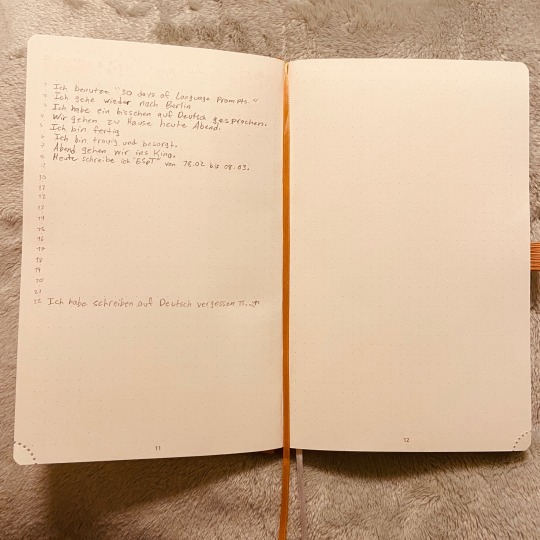 1 Ich benutze "30 days of Language Prompts."
2 Ich gehe wieder nach Berlin
3 Ich habe ein bisschen auf Deutsch gesprochen.
4 Wir gehen zu Hause heute Abend.
5 Ich bin fertig
6 Ich bin traurig und besorgt.
7 Abend gehen wir ins King.
8 Heute schreibe ich "ESpT" von 28.02 bis 08.03.
9
10
11
12
13
14
15
16
17
18
19
20
21
22 Ich habe schreiben auf Deutsch vergessen
11
12